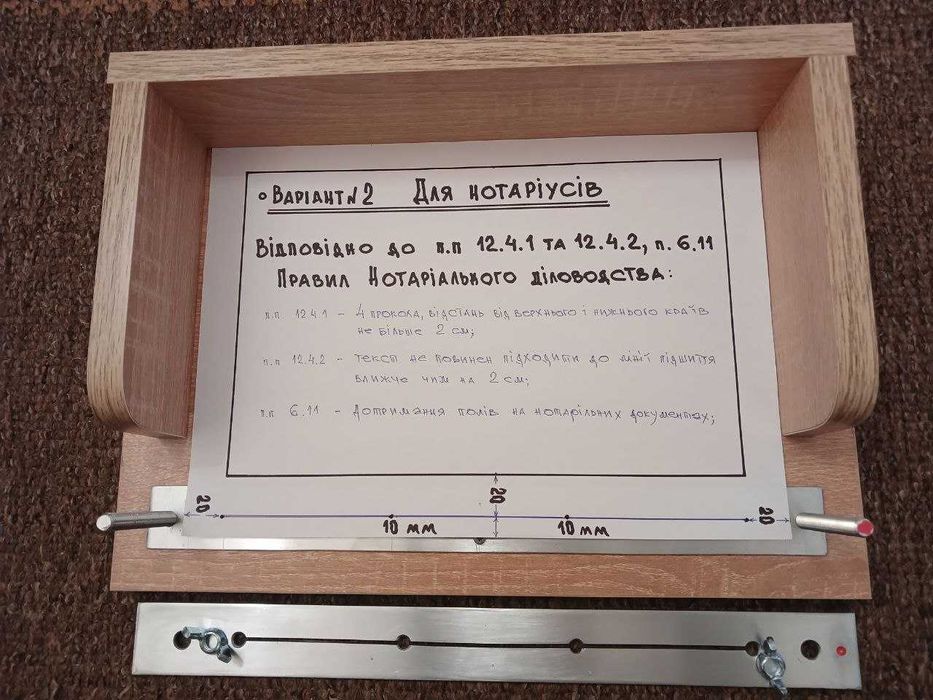 ВАРІАНТ №2 ДЛЯ НОТАРІУСІВ
ВІДПОВІДНО ДО П.П 12.4.1 ТА 12.4.2, П. 6.11
ПРАВИЛ НОТАРІАЛЬНОГО ДІЛОВОДСТВА:
п.п 12.4.1 – 4 прокола, відстань від верхнього і нижнього країв
не більше 2 см;
п.п 12.4.2 – текст не повинен підходити до лінії підшиття
ближче чим на 2 см;
п.п 6.11 – Дотримання полів на нотарільних документах;
20
20
20
10 мм
10 мм